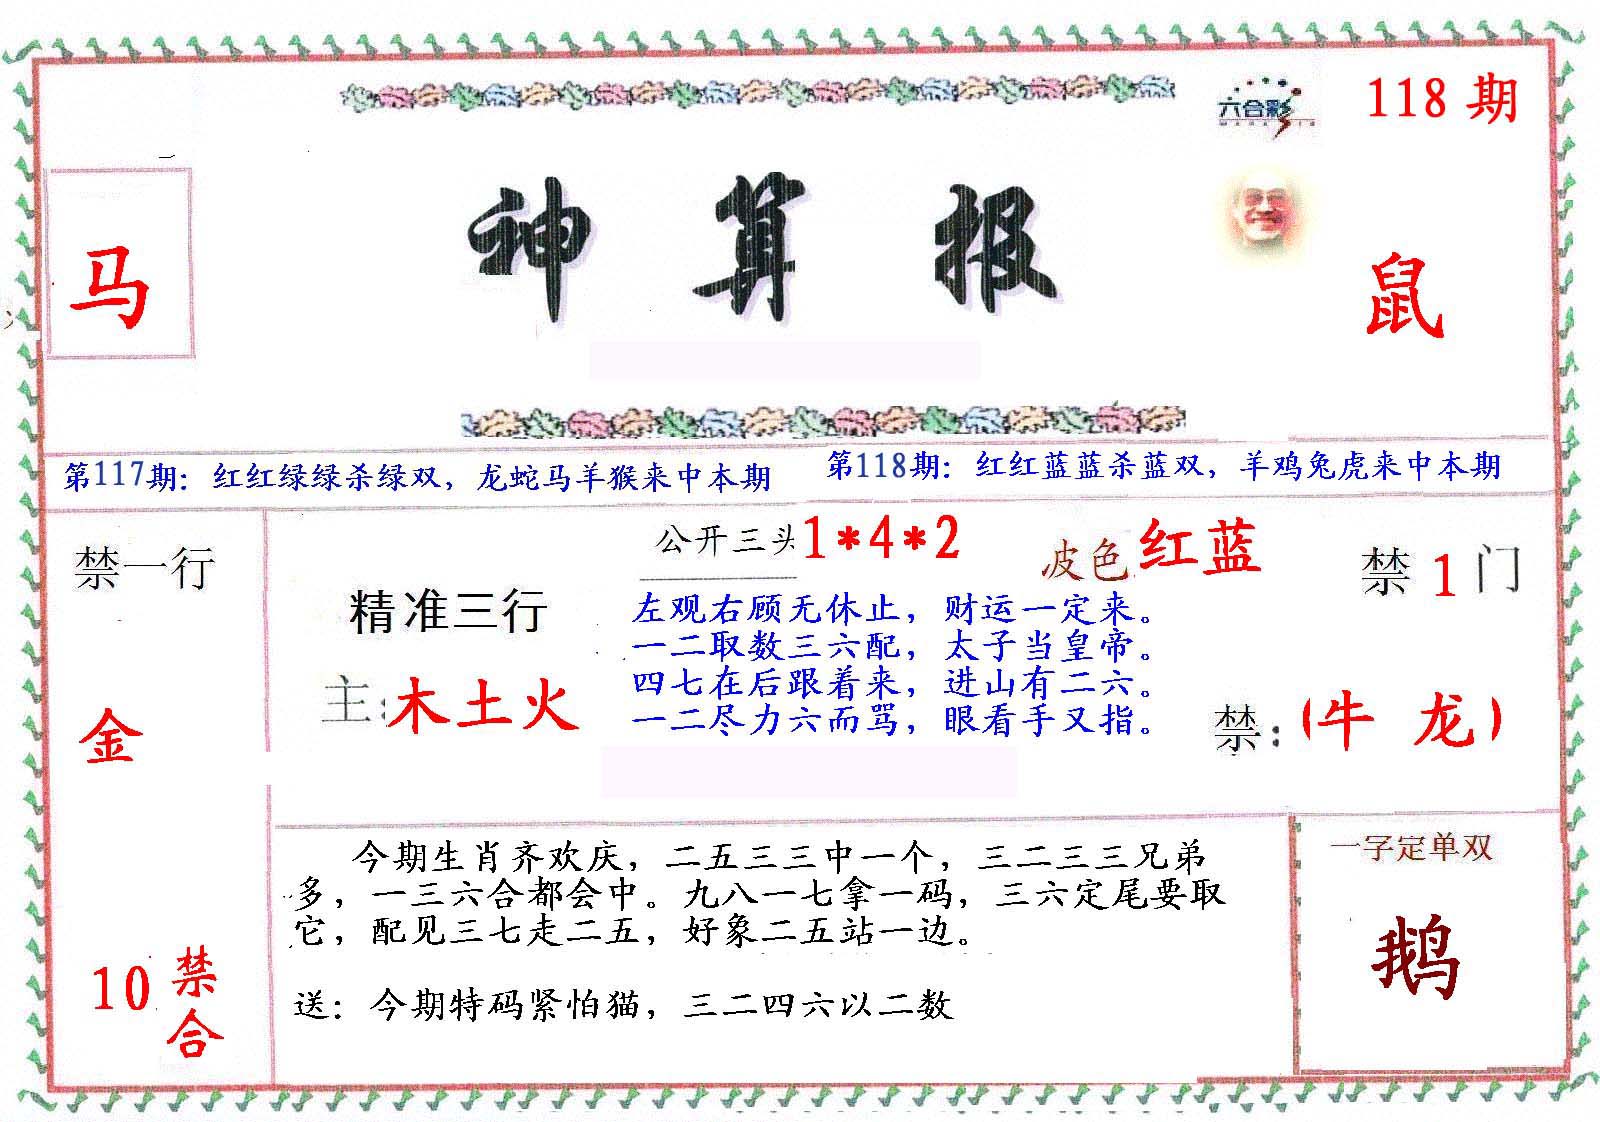 六合彩
118 期
神算报
马
鼠
第117期：红红绿绿杀绿双，龙蛇马羊猴来中本期
第118期：红红蓝蓝杀蓝双，羊鸡兔虎来中本期
禁一行
金
10 禁合
精准三行
主：木土火
公开三头 1*4*2
波色 红蓝
禁 1 门
左观右顾无休止，财运一定来。
一二取数三六配，太子当皇帝。
四七在后跟着来，进山有二六。
一二尽力六而骂，眼看手又指。
禁：(牛 龙)
今期生肖齐欢庆，二五三三中一个，三二三三兄弟
多，一三六合都会中。九八一七拿一码，三六定尾要取
它，配见三七走二五，好象二五站一边。
送：今期特码紧怕猫，三二四六以二数
一字定单双
鹅